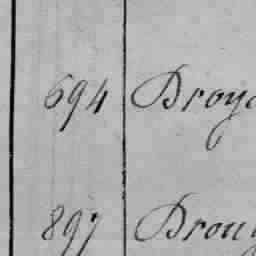 694 Droy
897 Drou